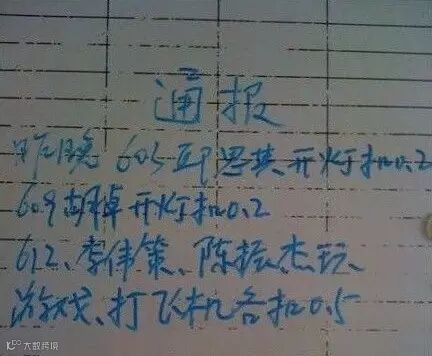 通报
昨晚605邱思其开灯扣0.2
609胡卓开灯扣0.2
612、李伟策、陈振杰玩、
游戏、打飞机各扣0.5
大数跨境